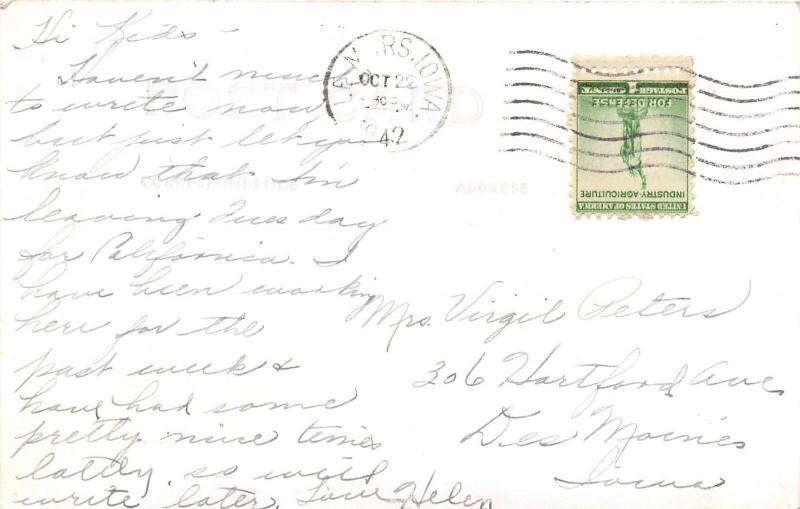 Hi Kids -
Haven't much
to write now
but just let you
know that I'm
leaving Tuesday
for California. I
have been working
here for the
past week &
have had some
pretty nice times
lattly so will
write later. Love Helen
LE MARS, IOWA
OCT 22
1942
POST CARD
CORRESPONDENCE
ADDRESS
UNITED STATES OF AMERICA
INDUSTRY-AGRICULTURE
FOR DEFENSE
POSTAGE
Mrs. Virgil Peters
306 Hartford Ave
Des Moines
Iowa